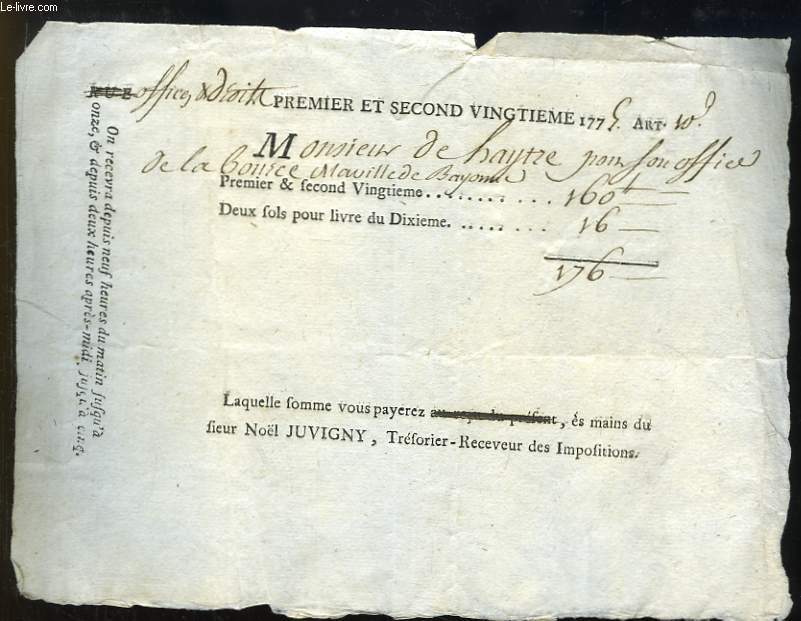 Le-livre.com
RUE offices & droits PREMIER ET SECOND VINGTIEME 1775. ART. 10.
Monsieur de haytze pour son office
de la Bource de Bayonne
Premier & ſecond Vingtieme.......... 160 ₶
Deux ſols pour livre du Dixieme. ........ 16
176
Laquelle ſomme vous payerez au reçu du préſent, ès mains du
ſieur Noël JUVIGNY, Tréſorier-Receveur des Impoſitions.
On recevra depuis neuf heures du matin juſqu'à
onze, & depuis deux heures après-midi, juſqu'à cinq.